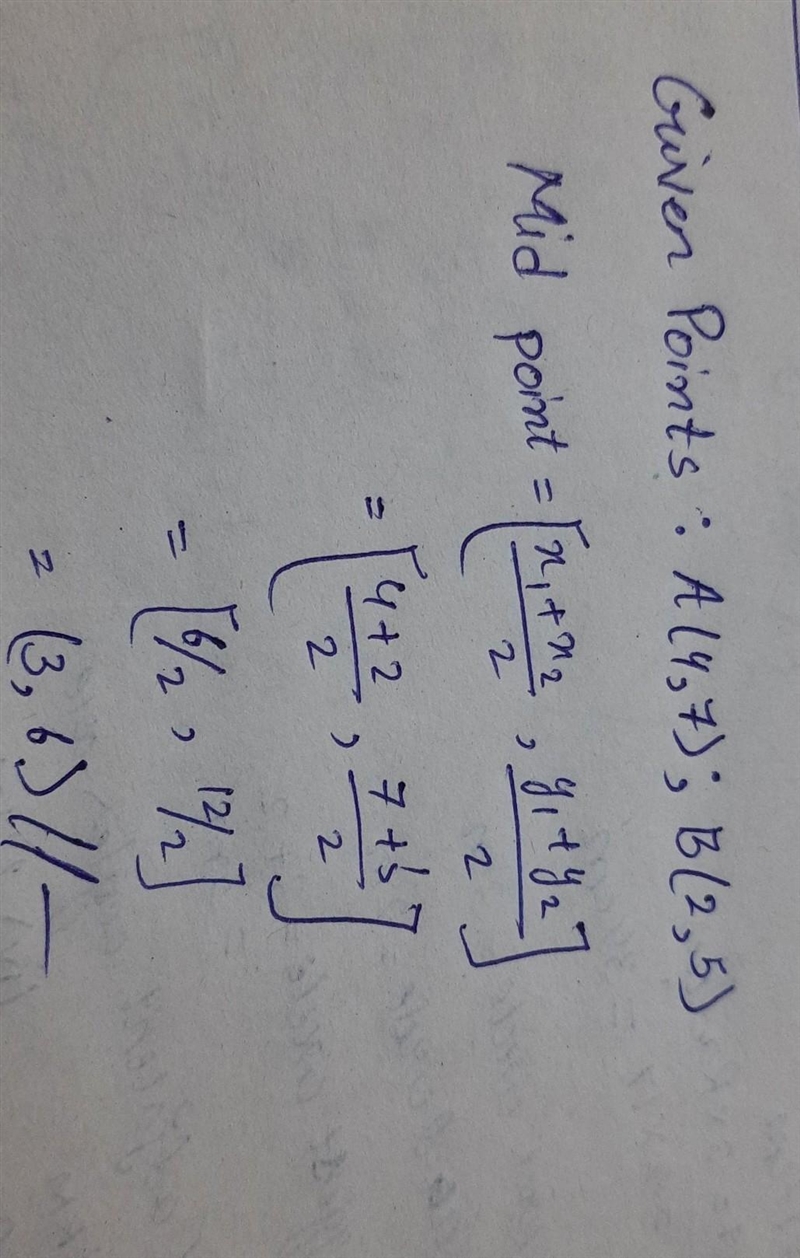 Given Points : A(4,7); B(2,5)
Mid point = [x₁+x₂/2 , y₁+y₂/2]
= [4+2/2 , 7+5/2]
= [6/2 , 12/2]
= (3, 6) //